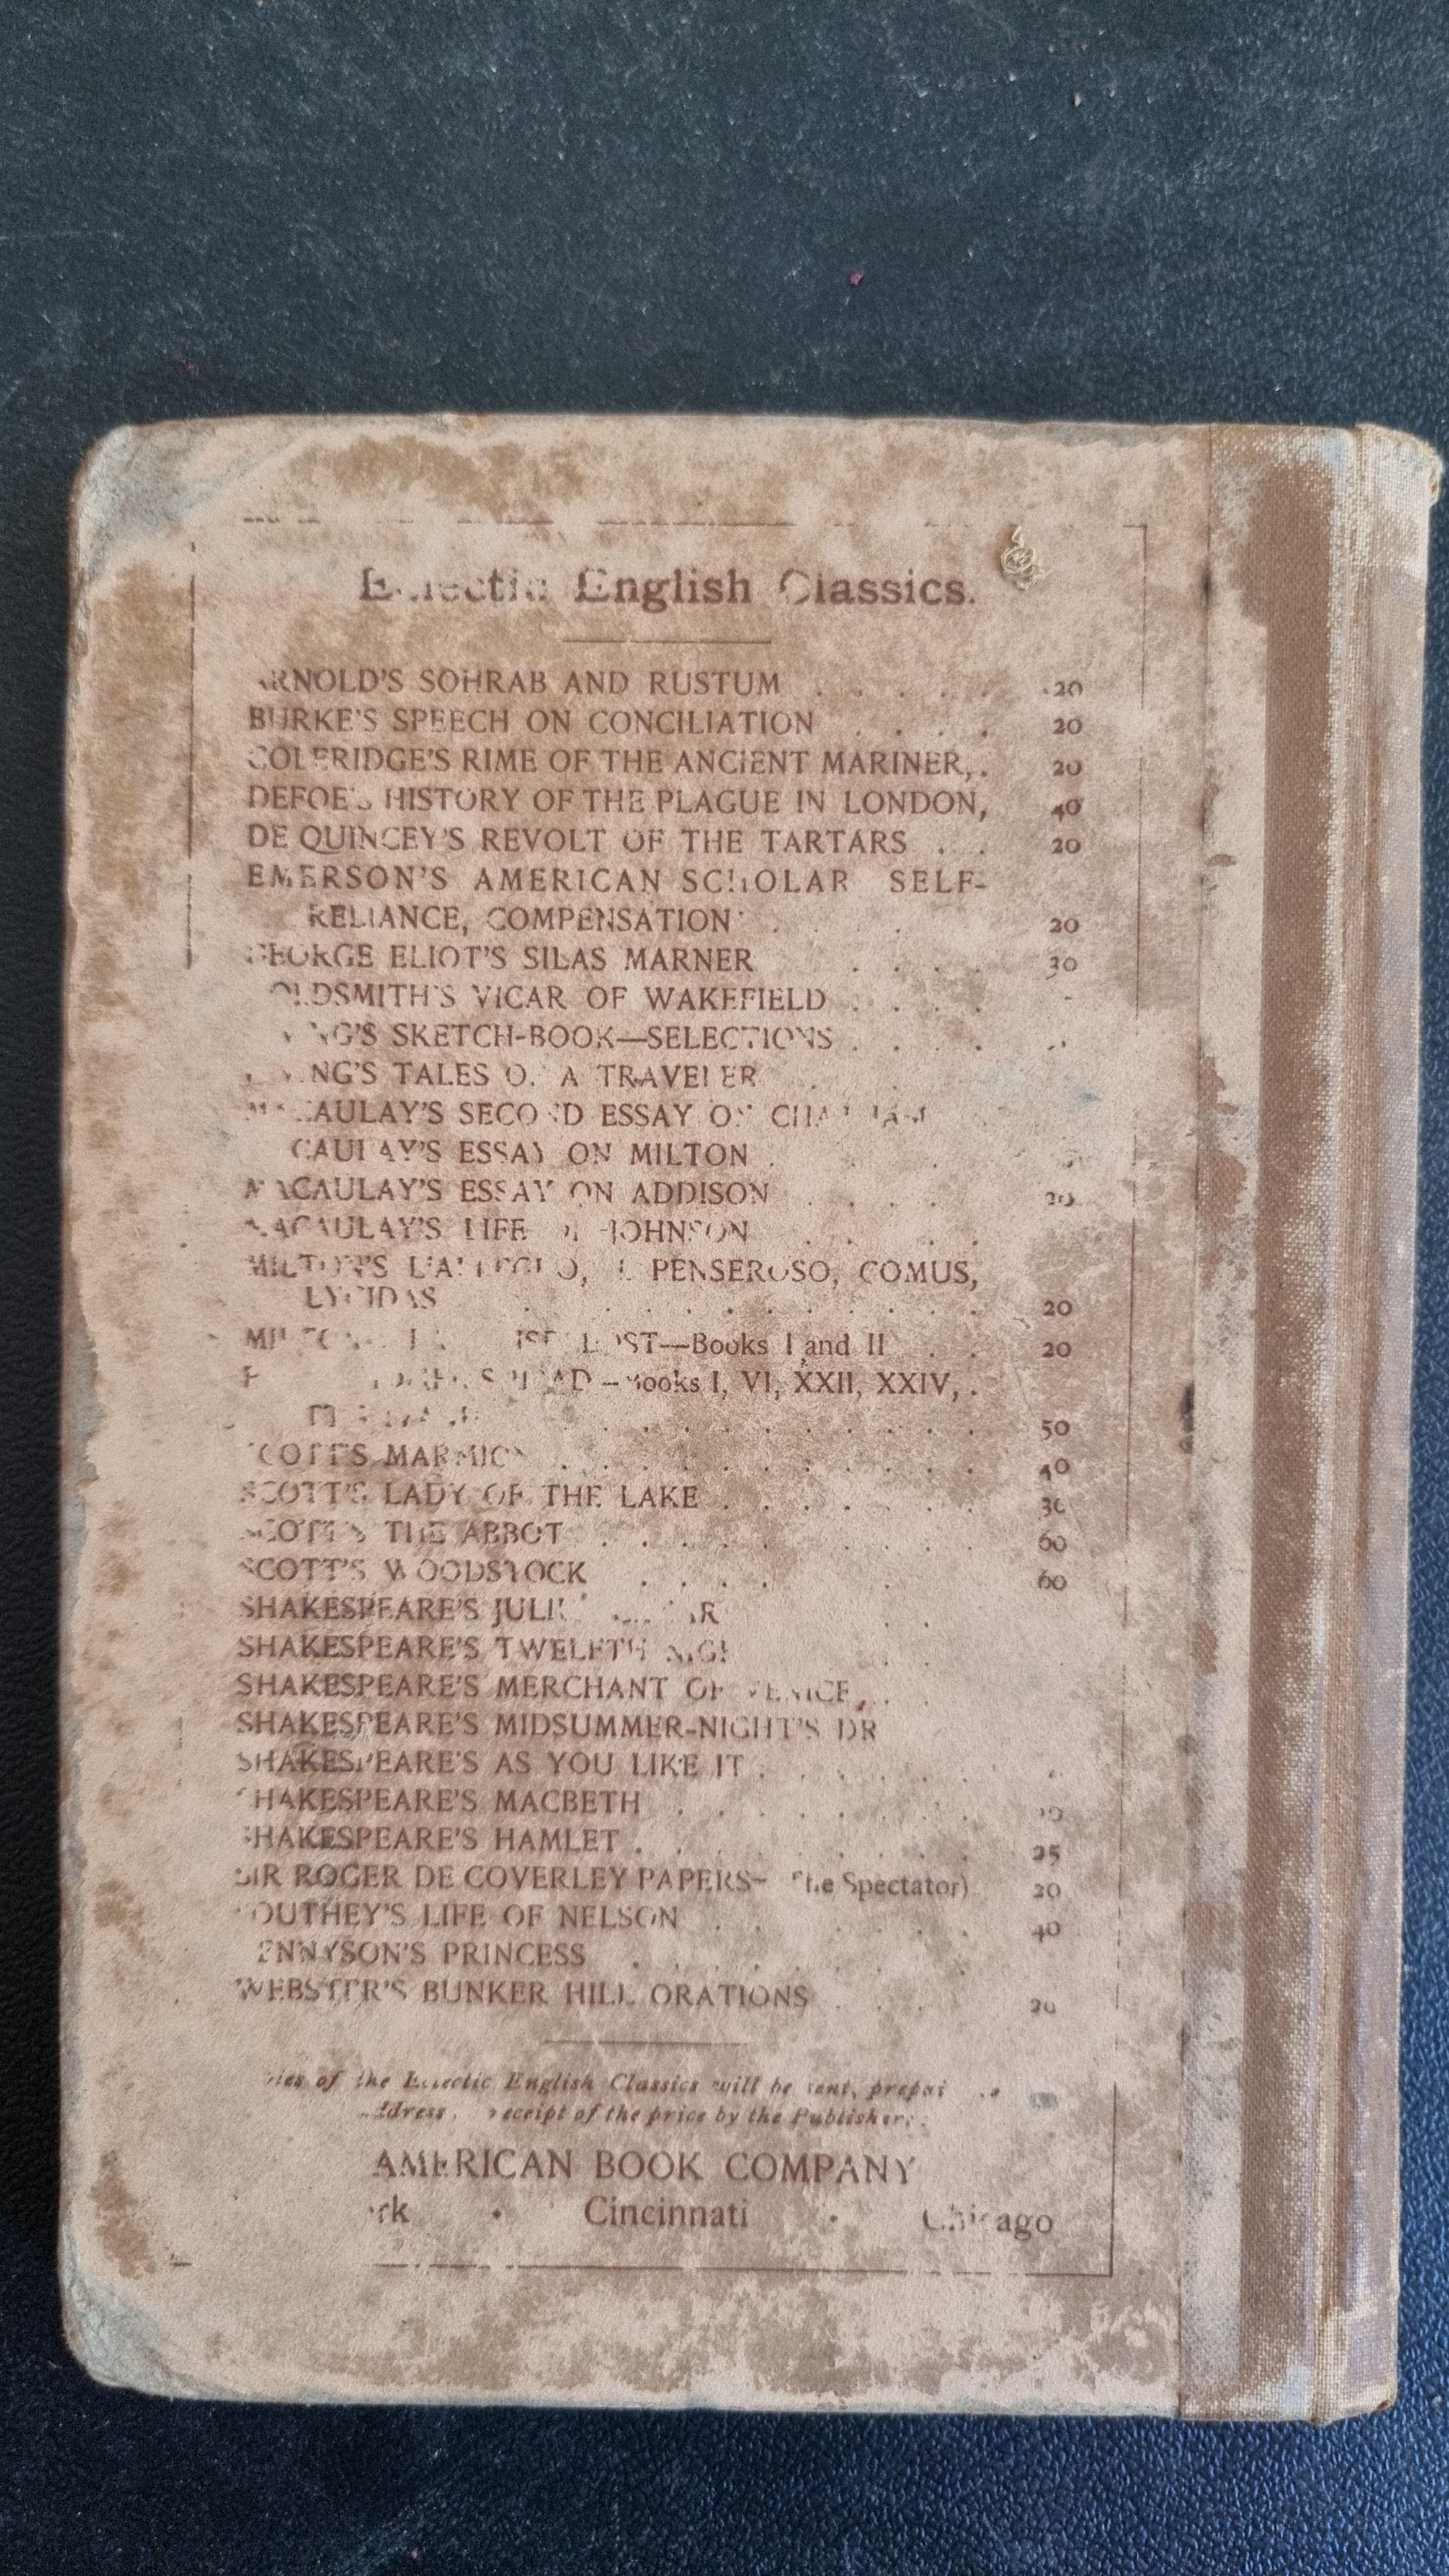 Eclectic English Classics.
ARNOLD'S SOHRAB AND RUSTUM . . . . . 20
BURKE'S SPEECH ON CONCILIATION . . . . 20
COLERIDGE'S RIME OF THE ANCIENT MARINER, . 20
DEFOE'S HISTORY OF THE PLAGUE IN LONDON, 40
DE QUINCEY'S REVOLT OF THE TARTARS . . 20
EMERSON'S AMERICAN SCHOLAR SELF-
RELIANCE, COMPENSATION . . . . 20
GEORGE ELIOT'S SILAS MARNER . . . . 30
GOLDSMITH'S VICAR OF WAKEFIELD . . . .
IRVING'S SKETCH-BOOK—SELECTIONS . . . .
IRVING'S TALES OF A TRAVELER
MACAULAY'S SECOND ESSAY ON CHATHAM
MACAULAY'S ESSAY ON MILTON .
MACAULAY'S ESSAY ON ADDISON . . . . 20
MACAULAY'S LIFE OF JOHNSON
MILTON'S L'ALLEGRO, IL PENSEROSO, COMUS,
LYCIDAS . . . . . . . . . . 20
MILTON'S PARADISE LOST—Books I and II . . 20
ILIAD—Books I, VI, XXII, XXIV, .
. . . . . . . . 50
SCOTT'S MARMION . . . . . . . . . 40
SCOTT'S LADY OF THE LAKE . . . . . . . 30
SCOTT'S THE ABBOT . . . . . . . . . 60
SCOTT'S WOODSTOCK . . . . . 60
SHAKESPEARE'S JULIUS CAESAR
SHAKESPEARE'S TWELFTH NIGHT
SHAKESPEARE'S MERCHANT OF VENICE, . .
SHAKESPEARE'S MIDSUMMER-NIGHT'S DR
SHAKESPEARE'S AS YOU LIKE IT . . . . . .
SHAKESPEARE'S MACBETH . . . . . . .
SHAKESPEARE'S HAMLET . . . . . . . . 25
SIR ROGER DE COVERLEY PAPERS— The Spectator) 20
SOUTHEY'S LIFE OF NELSON . . . . . . 40
TENNYSON'S PRINCESS . . . . . . .
WEBSTER'S BUNKER HILL ORATIONS . . . 20
of the Eclectic English Classics will be sent, prepaid
address, receipt of the price by the Publishers:
AMERICAN BOOK COMPANY
York • Cincinnati • Chicago